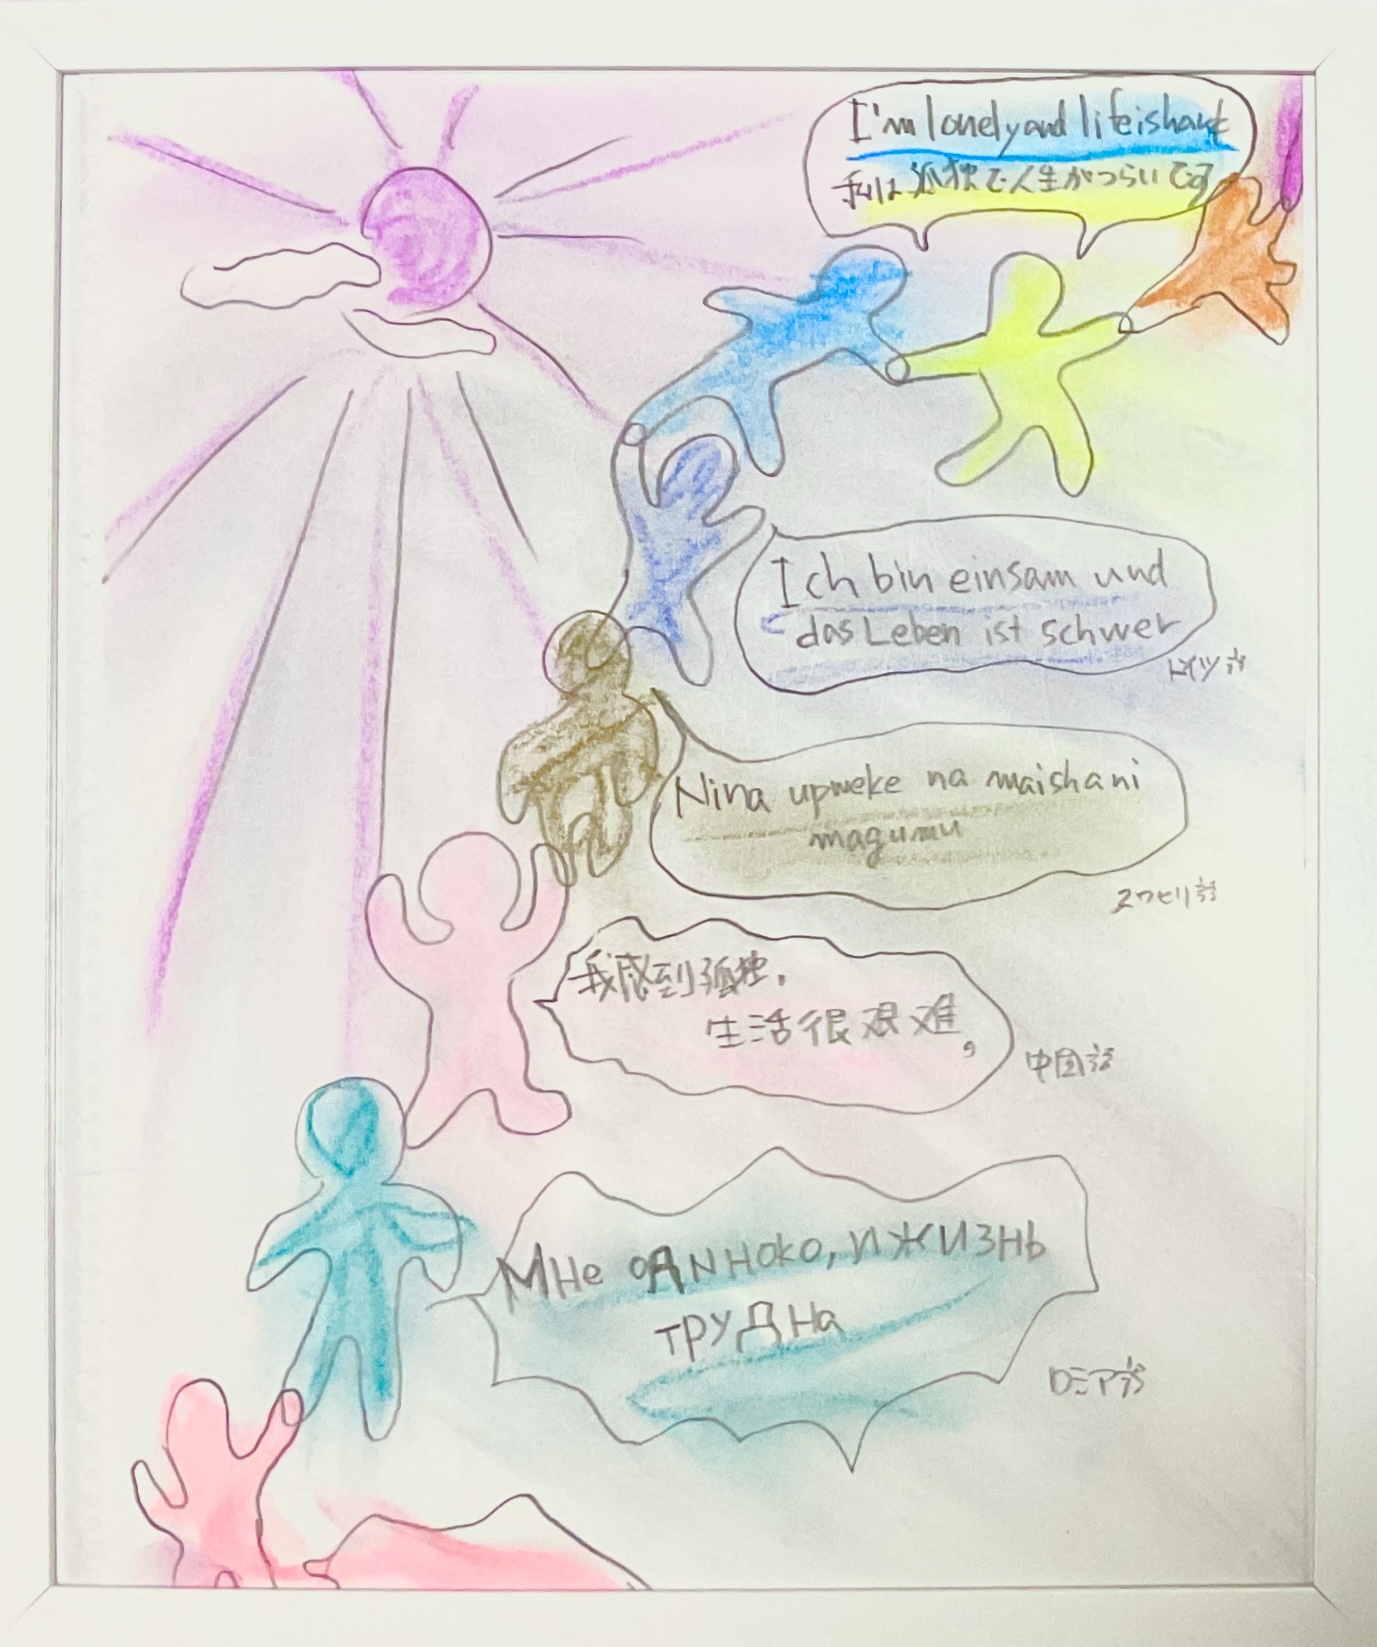 I'm lonely and life is hard
私は孤独で人生がつらいです
Ich bin einsam und
das Leben ist schwer
ドイツ語
Nina upweke na maisha ni
magumu
スワヒリ語
我感到孤独.
生活很艰难,
中国語
Мне одиноко, и жизнь
трудна
ロシア語